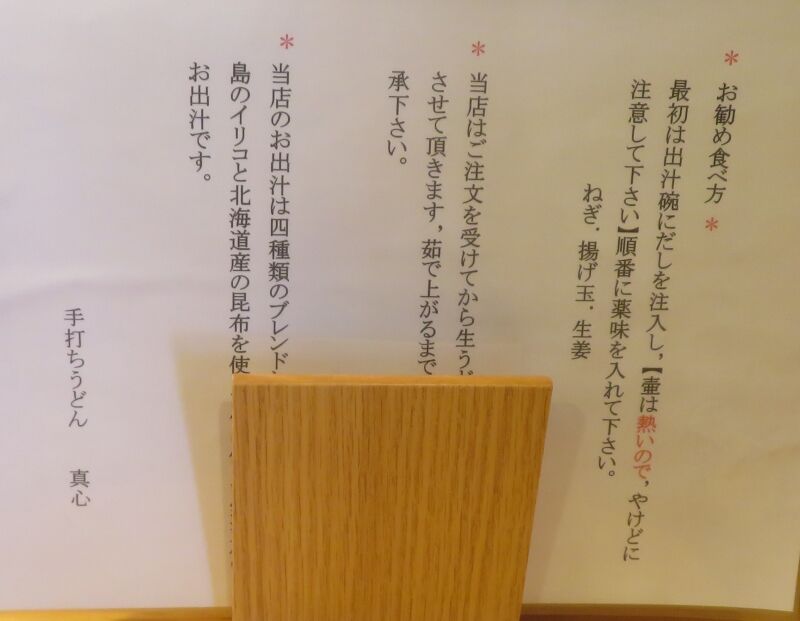 * お勧め食べ方 *
最初は出汁碗にだしを注入し,【壷は熱いので,やけどに
注意して下さい】順番に薬味を入れて下さい。
ねぎ．揚げ玉．生姜
* 当店はご注文を受けてから生う
させて頂きます,茹で上がるまで
承下さい。
* 当店のお出汁は四種類のブレンド
島のイリコと北海道産の昆布を使
お出汁です。
手打ちうどん 真心